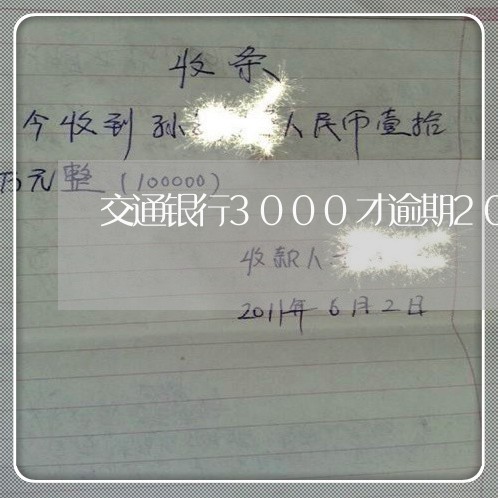 收条
今收到孙 人民币壹拾
万元整(100000)
交通银行3000才逾期20
收款人
2011年6月2日